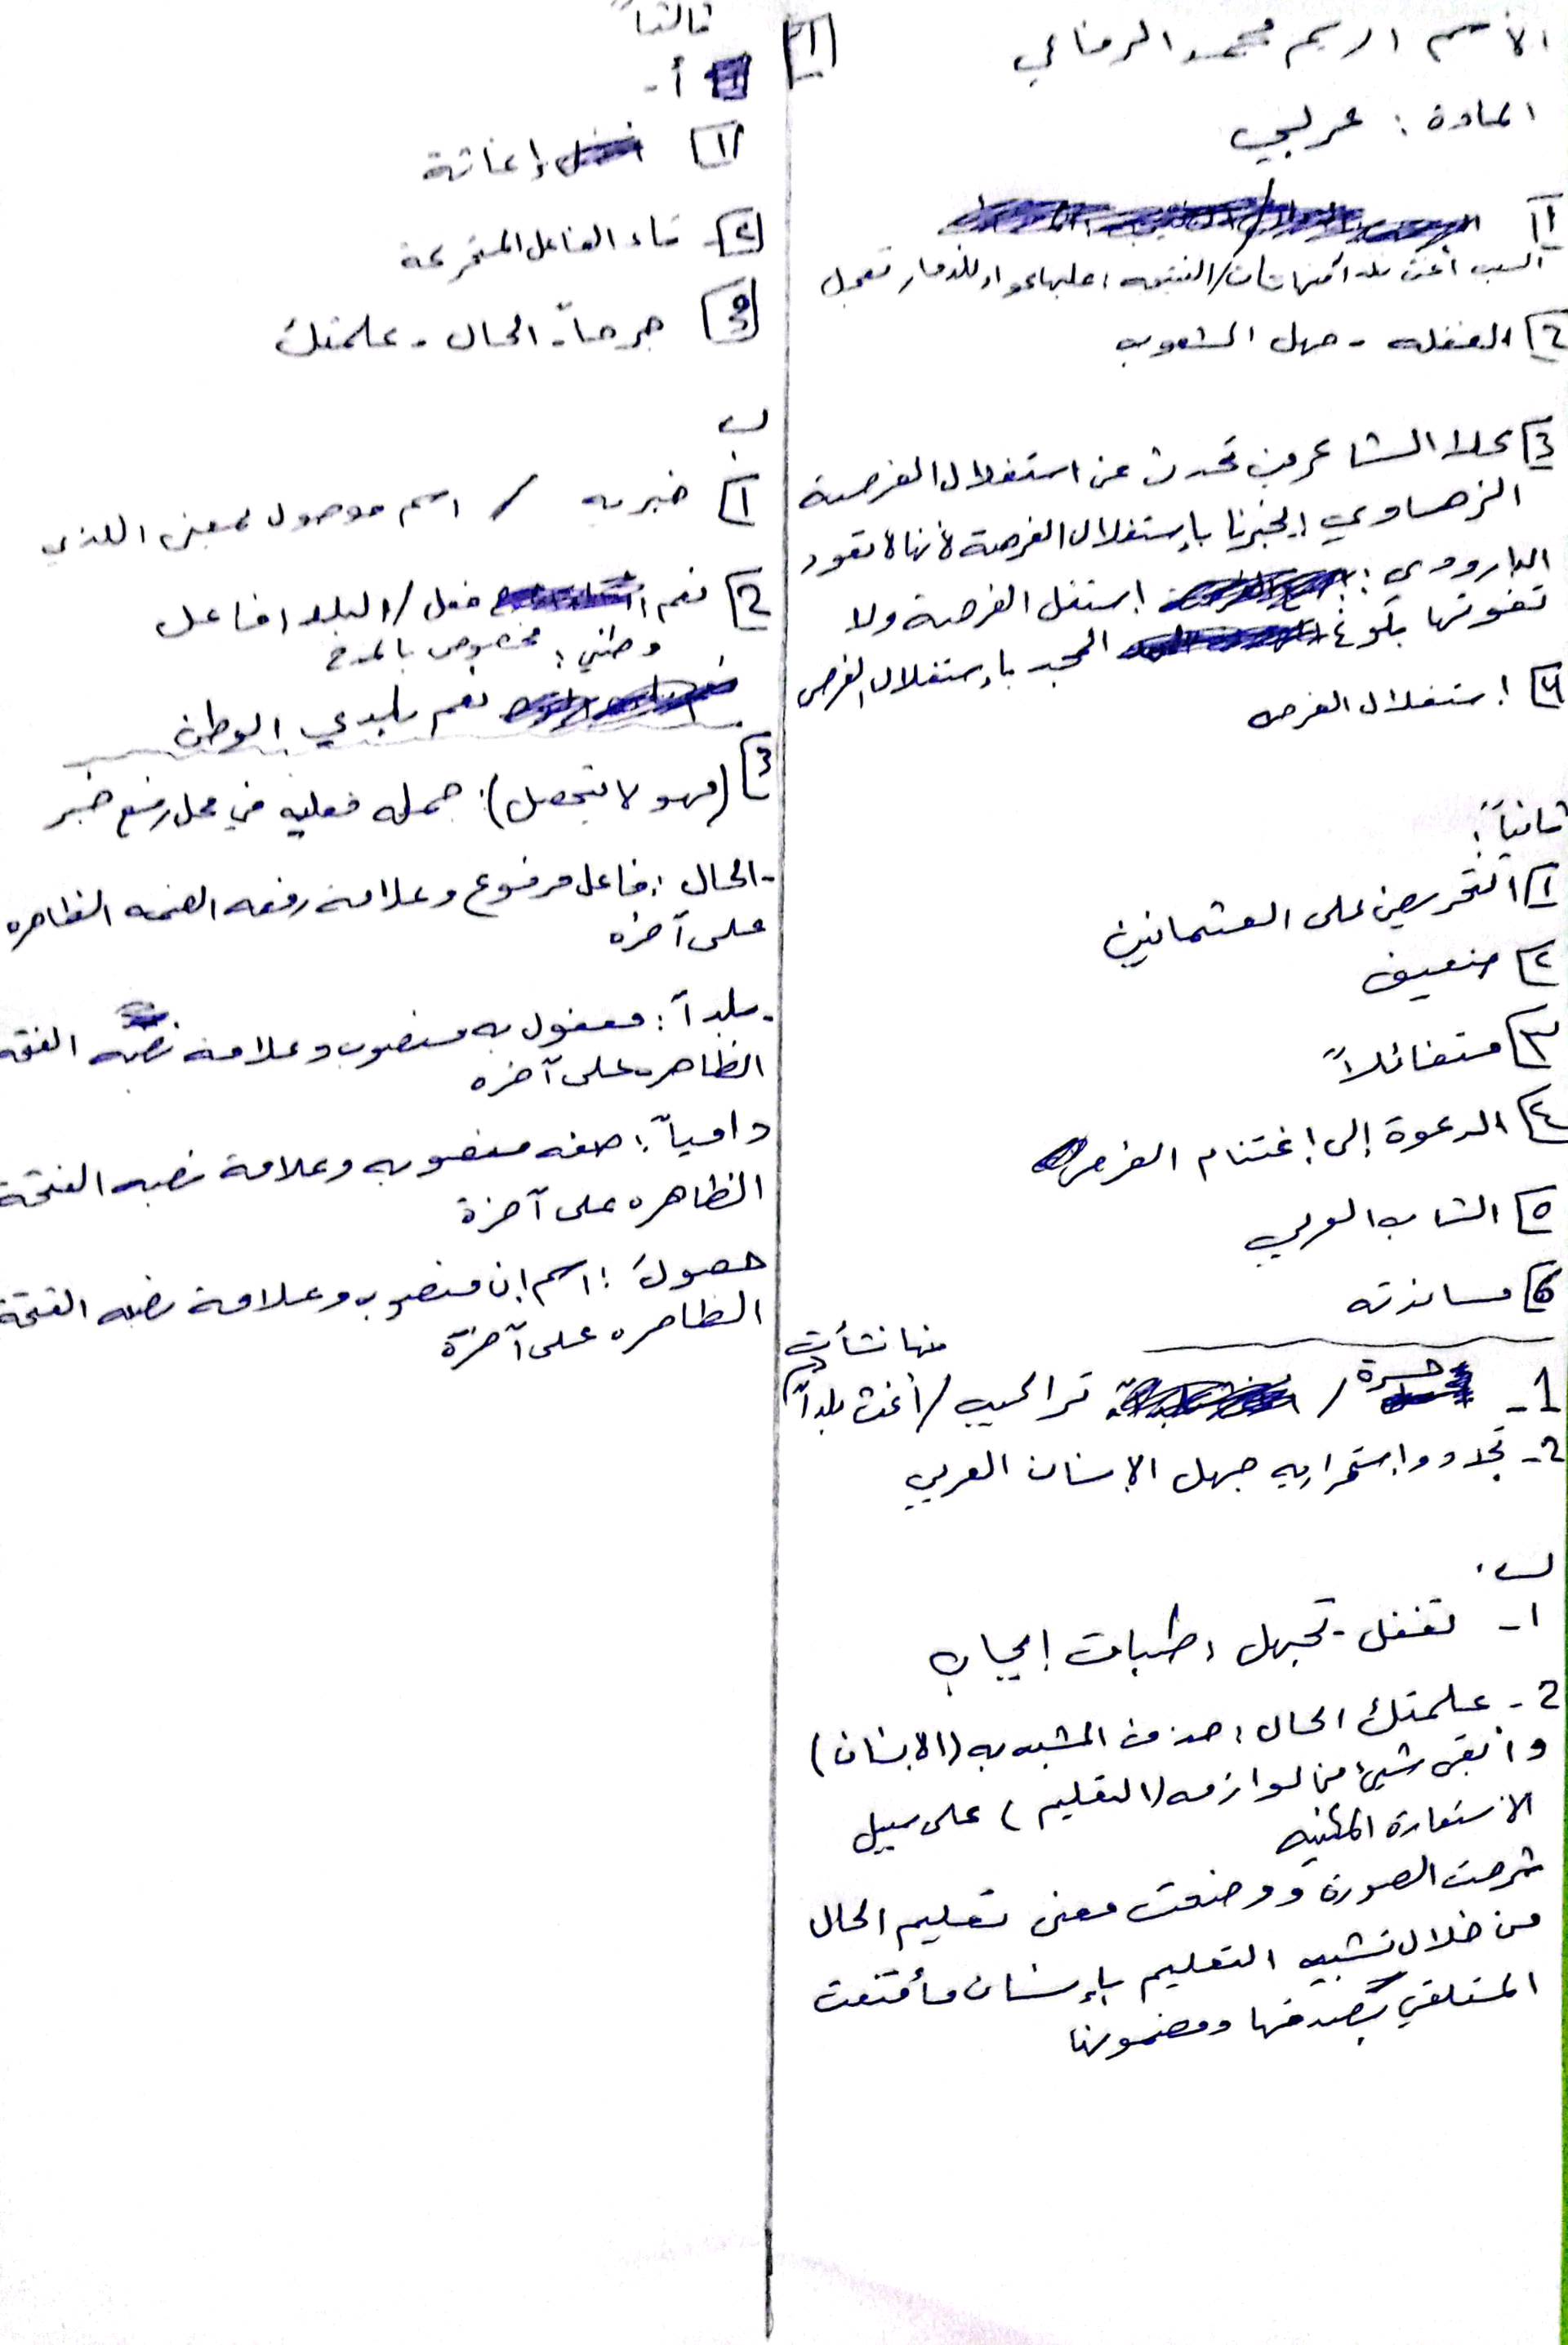 [1]
الاسم : ريم محمد الرفاعي
المادة : عربي
1]
السبب أغث بلداً منها نشأت / النتيجه : عليها عواد للدمار تعجل
2] الغفله - جهل الشعوب
3] كلا الشاعرين تحدث عن استغلال الفرصة
الزهاوي : يخبرنا بإستغلال الفرصة لأنها لا تعود
البارودي : إستغل الفرصة ولا
تفوتها بلوغ المجد بإستغلال الفرص
4] استغلال الفرص
ثانياً :
1] التحريض على العثمانيين
2] ضعيف
3] متفائلاً
4] الدعوة إلى إغتنام الفرص
5] الشاب العربي
6] مساندته
1- حسرة / تراكيب / أغث بلداً منها نشأت
2- تجدد واستمراريه جهل الإنسان العربي
ب .
1- تغفل - تجهل : طباق إيجاب
2- علمتك الحال : حذف المشبه به (الإنسان)
وأبقى شيئ من لوازمه (التعليم) على سبيل
الاستعارة المكنيه
شرحت الصورة ووضحت معنى تعليم الحال
من خلال تشبيه التعليم بإنسان فأقنعت
المتلقي بصدقها ومضمونها
ثالثاً
أ-
1] إغاثة
2] تاء الفاعل المتحركة
3] جرحاً - الحال - علمتك
ب
1] خبريه / اسم موصول بمعنى اللذي
2] نعم : فعل / البلد : فاعل
وطني : مخصوص بالمدح
نعم بلدي الوطن
3] (فهو لا تجهل) : جمله فعليه في محل رفع خبر
- الحال : فاعل مرفوع وعلامة رفعه الضمه الظاهره
على آخره
- بلداً : مفعول به منصوب وعلامة نصبه الفتحه
الظاهره على آخره
دامياً : صفه منصوبه وعلامة نصبه الفتحة
الظاهره على آخرة
حصولَ : اسم إن منصوب وعلامة نصبه الفتحة
الظاهره على آخرة